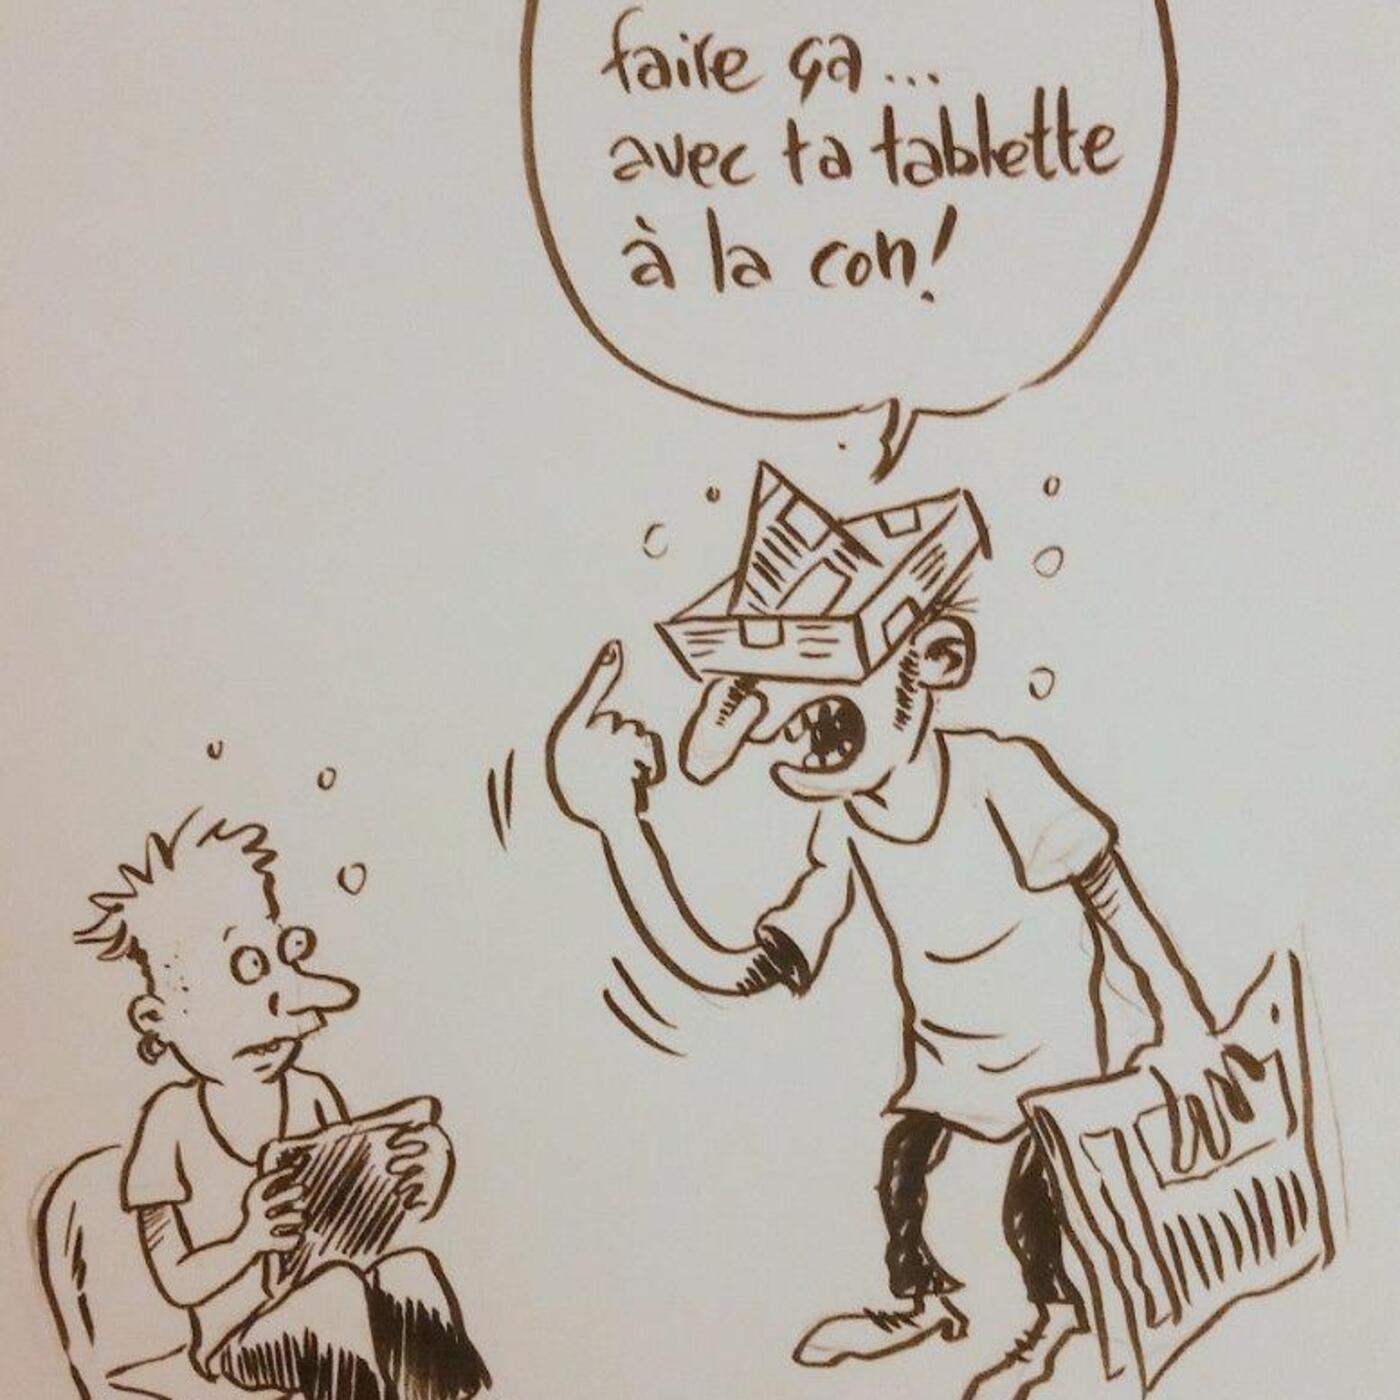 faire ça...
avec ta tablette
à la con!